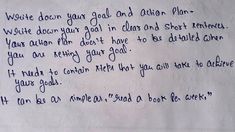 Write down your goal and action plan-
Write down your goal in clear and short sentences.
Your action plan doesn't have to be detailed when
you are setting your goal.
It needs to contain steps that you will take to achieve
your goals.
It can be as simple as, "read a book per week,"